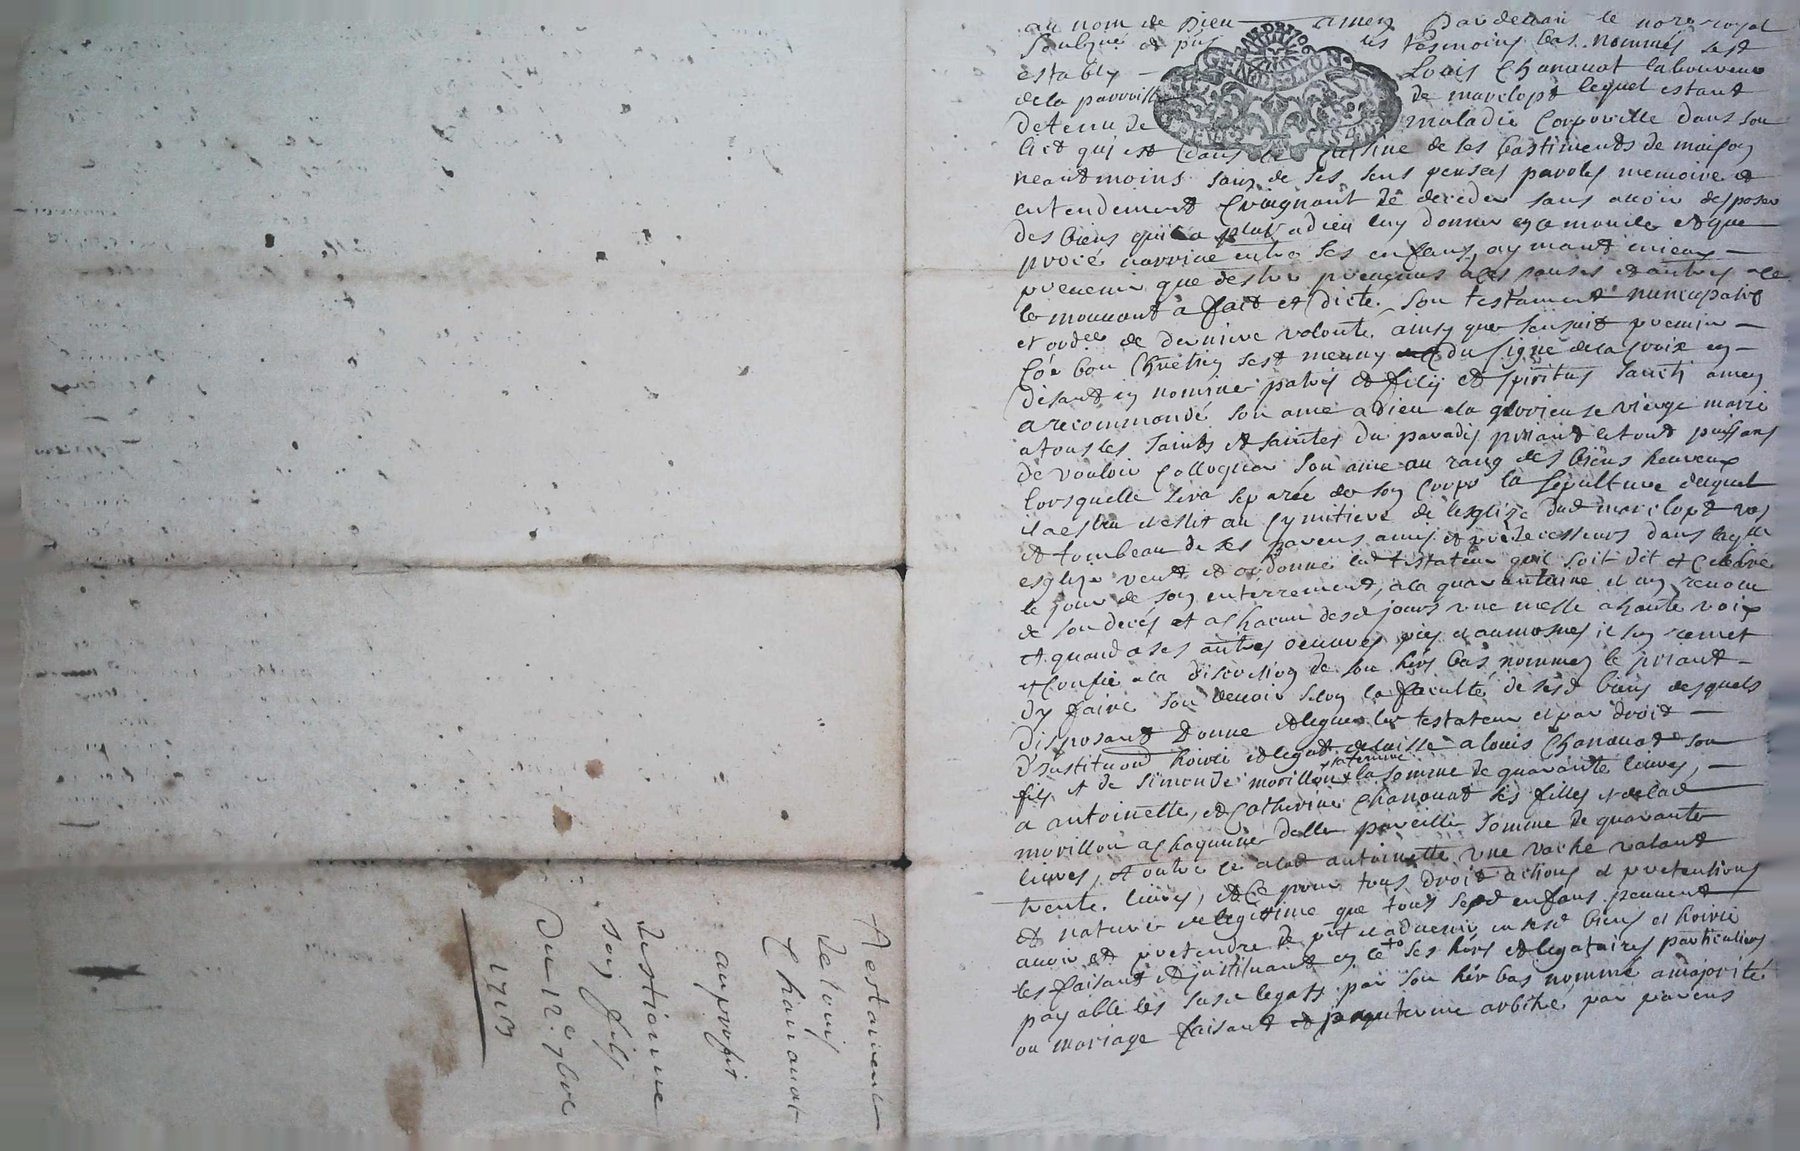 au nom de Dieu amen Pardevant le nore royal
soubzné et pnt les tesmoins bas nommés sest
estably Louis Chanauat laboureur
de la parroisse de marclopt lequel estant
detenu de maladie corporelle dans son
lict qui est dans la cuisine de ses bastiments de maison
neantmoins sain de ses sens pensées parolles memoire et
entendement craignant de deceder sans avoir desposer
des biens qu'il a plut a dieu luy donner en ce monde et que
procé narrive entre ses enfans, aymant mieux
prevenir que destre prevenus a ces causes et autres a ce
le mouvant a faict et dicté son testament nuncupatif
et ordce de derniere volonté ainsy que sensuit premier
coe bon chrêtien sest meuny du signe de la croix en
disant in nomine patris et filij et spiritus sancti amen
a recommandé son ame a dieu a la glorieuse vierge marie
a tous les saints et saintes du paradis priant le tout puissans
de vouloir colloquer son ame au rang des biens heureux
lorsquelle sera separée de son corps la sepulture duquel
il a eslu et eslit au cymitiere de lesglize dud marclopt
et tombeau de ses parens amis et predecesseurs dans laqlle
esglize veut et ordonne led testateur quil soit dit et celebré
le jour de son enterrement, a la quarantaine et au renou
de son decés et a chacun desd jours une messe a haute voix
et quand a ses autres oeuvres pies et aumosnes il sen remet
et confie a la discretion de son hers bas nommez le priant
dy faire son devoir selon la faculté de sesd biens desquels
disposant donne et legue led testateur et par droit
d'institution hoirie et legat delaissé a louis Chanauat son
fils et de simonde morillon sa femme la somme de quarante livres,
a antoinette, et catherine Chanauat ses filles et de lad
morillon a chaquune delles pareille somme de quarante
livres, et outre ce a lad antoinette une vache valant
trente livres, et ce pour tous droits actions et pretentions
et nature de legittime que tous sesd enfans peuvent
avoir et pretendre de pnt et advenir en sesd biens et hoirie
les faisant et instituant en ce ses hers et legataires particuliers
payable les susd legats par son her bas nommé a majorité
ou mariage faisant et par arbitré par parens
Testament
de Louis
Chanauat
au proffit
destienne
son fils
Du 12e 9bre
1713